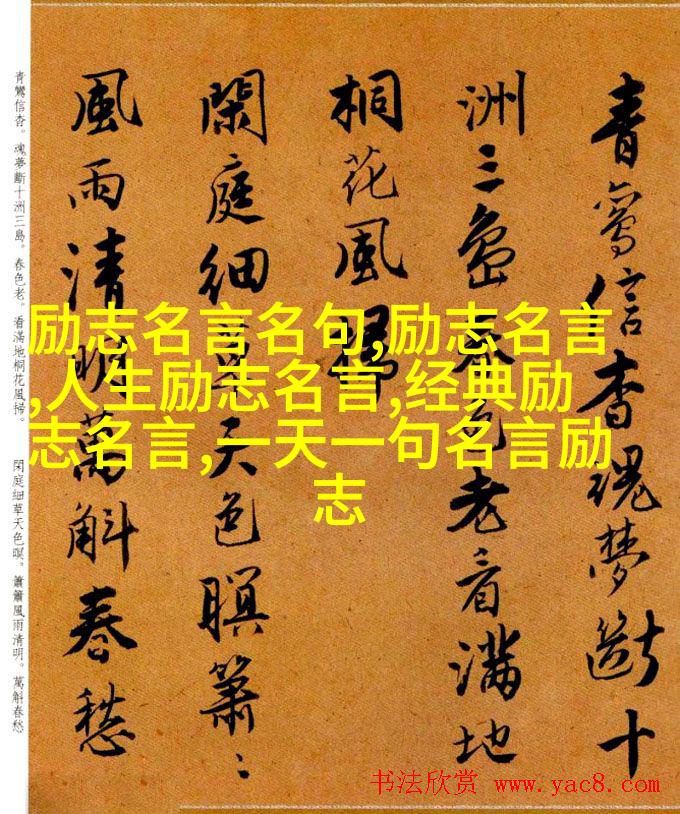 青鸞信杳魂夢斷十
洲三島春色老看滿地
桐花風掃
閑庭細草天色暝簫〻
風雨清明萬斛春愁
青鸞信杳。魂夢斷十洲三島。春色老。看滿地桐花風掃。
閑庭細草天色暝。簫簫風雨清明。萬斛春愁
励志名言名句,励志名言
,人生励志名言,经典励
志名言,一天一句名言励
志
书法欣赏 www.yac8.com